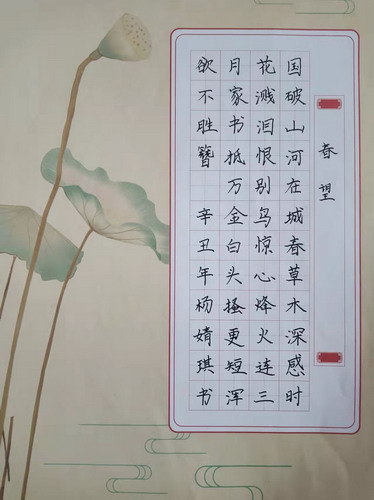 春望
国破山河在城春草木深感时
花溅泪恨别鸟惊心烽火连三
月家书抵万金白头搔更短浑
欲不胜簪 辛丑年杨婧琪书